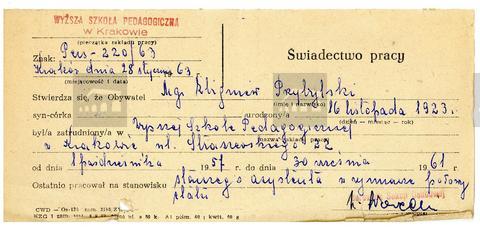 WYŻSZA SZKOŁA PEDAGOGICZNA
w Krakowie
(pieczątka zakładu pracy)
Znak: Pers-220/63
Kraków dnia 28 stycznia 63
(miejscowość i data)
Świadectwo pracy
Stwierdza się, że Obywatel Mgr Zbigniew Przybylski
(imię i nazwisko)
syn-córka urodzony/a 16 listopada 1923.
(dzień — miesiąc — rok)
był/a zatrudniony/a w Wyższej Szkole Pedagogicznej
(nazwa zakładu pracy)
w Krakowie ul. Straszewskiego 22
od dnia 1 października 1957 r. do dnia 30 września 1961 r.
Ostatnio pracował na stanowisku starszego asystenta w wymiarze połowy
etatu